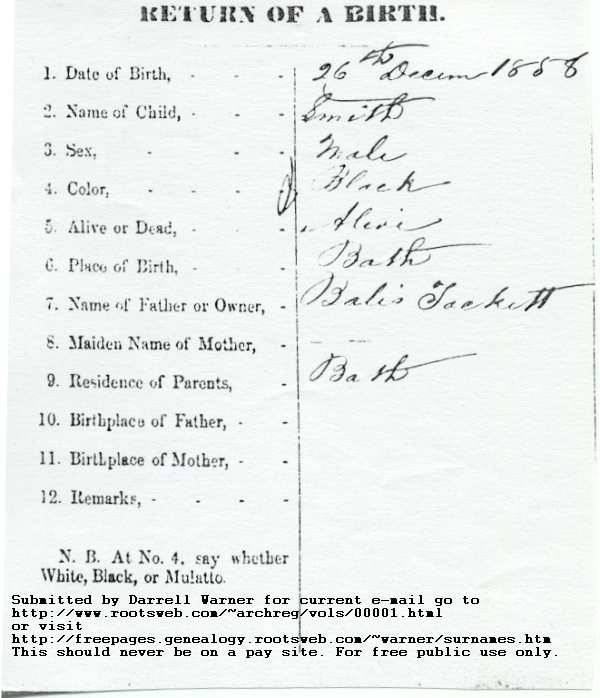 RETURN OF A BIRTH.
1. Date of Birth, - - - 26th Decem 1858
2. Name of Child, - - - Smith
3. Sex, - - - Male
4. Color, - - - Black
5. Alive or Dead, - - - Alive
6. Place of Birth, - - - Bath
7. Name of Father or Owner, - Balis Tackett
8. Maiden Name of Mother, -
9. Residence of Parents, - Bath
10. Birthplace of Father, - -
11. Birthplace of Mother, - -
12. Remarks, - - - -
N. B. At No. 4, say whether
White, Black, or Mulatto.
Submitted by Darrell Warner for current e-mail go to
http://www.rootsweb.com/~archreg/vols/00001.html
or visit
http://freepages.genealogy.rootsweb.com/~warner/surnames.htm
This should never be on a pay site. For free public use only.